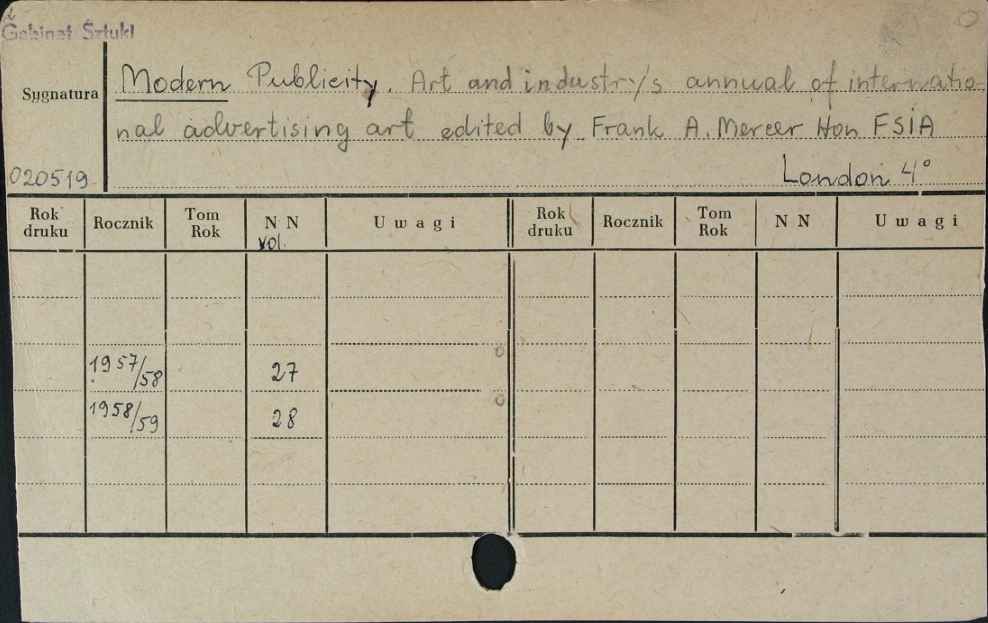 Gabinet Sztuki
Sygnatura
Modern Publicity. Art and industry's annual of internatio-
nal advertising art edited by Frank A. Mercer Hon FSIA
020519
London 4°
Rok druku Rocznik Tom Rok N N vol. Uwagi Rok druku Rocznik Tom Rok N N Uwagi
1957/58 27
1958/59 28